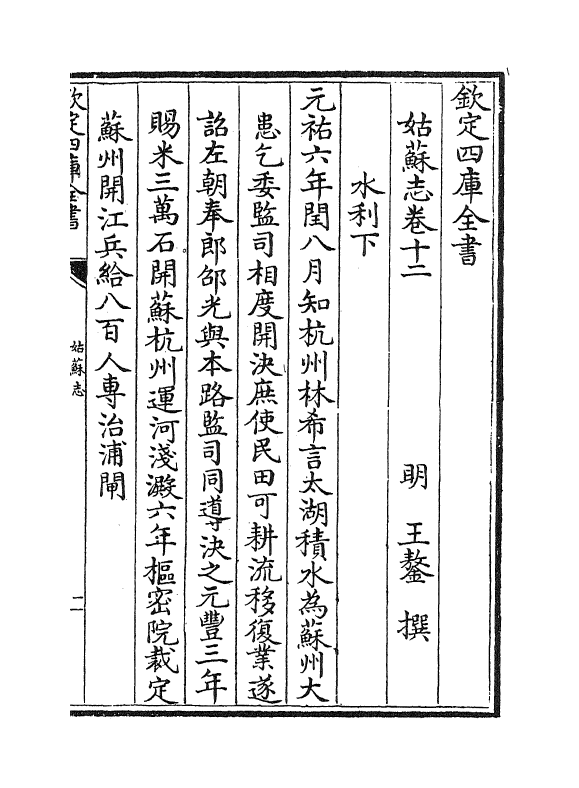 欽定四庫全書
姑蘇志卷十二
明 王鏊 撰
水利下
元祐六年閏八月知杭州林希言太湖積水為蘇州大
患乞委監司相度開決庶使民田可耕流移復業遂
詔左朝奉郎邵光與本路監司同導決之元豐三年
賜米三萬石開蘇杭州運河淺澱六年樞密院裁定
蘇州開江兵給八百人專治浦閘
欽定四庫全書
姑蘇志